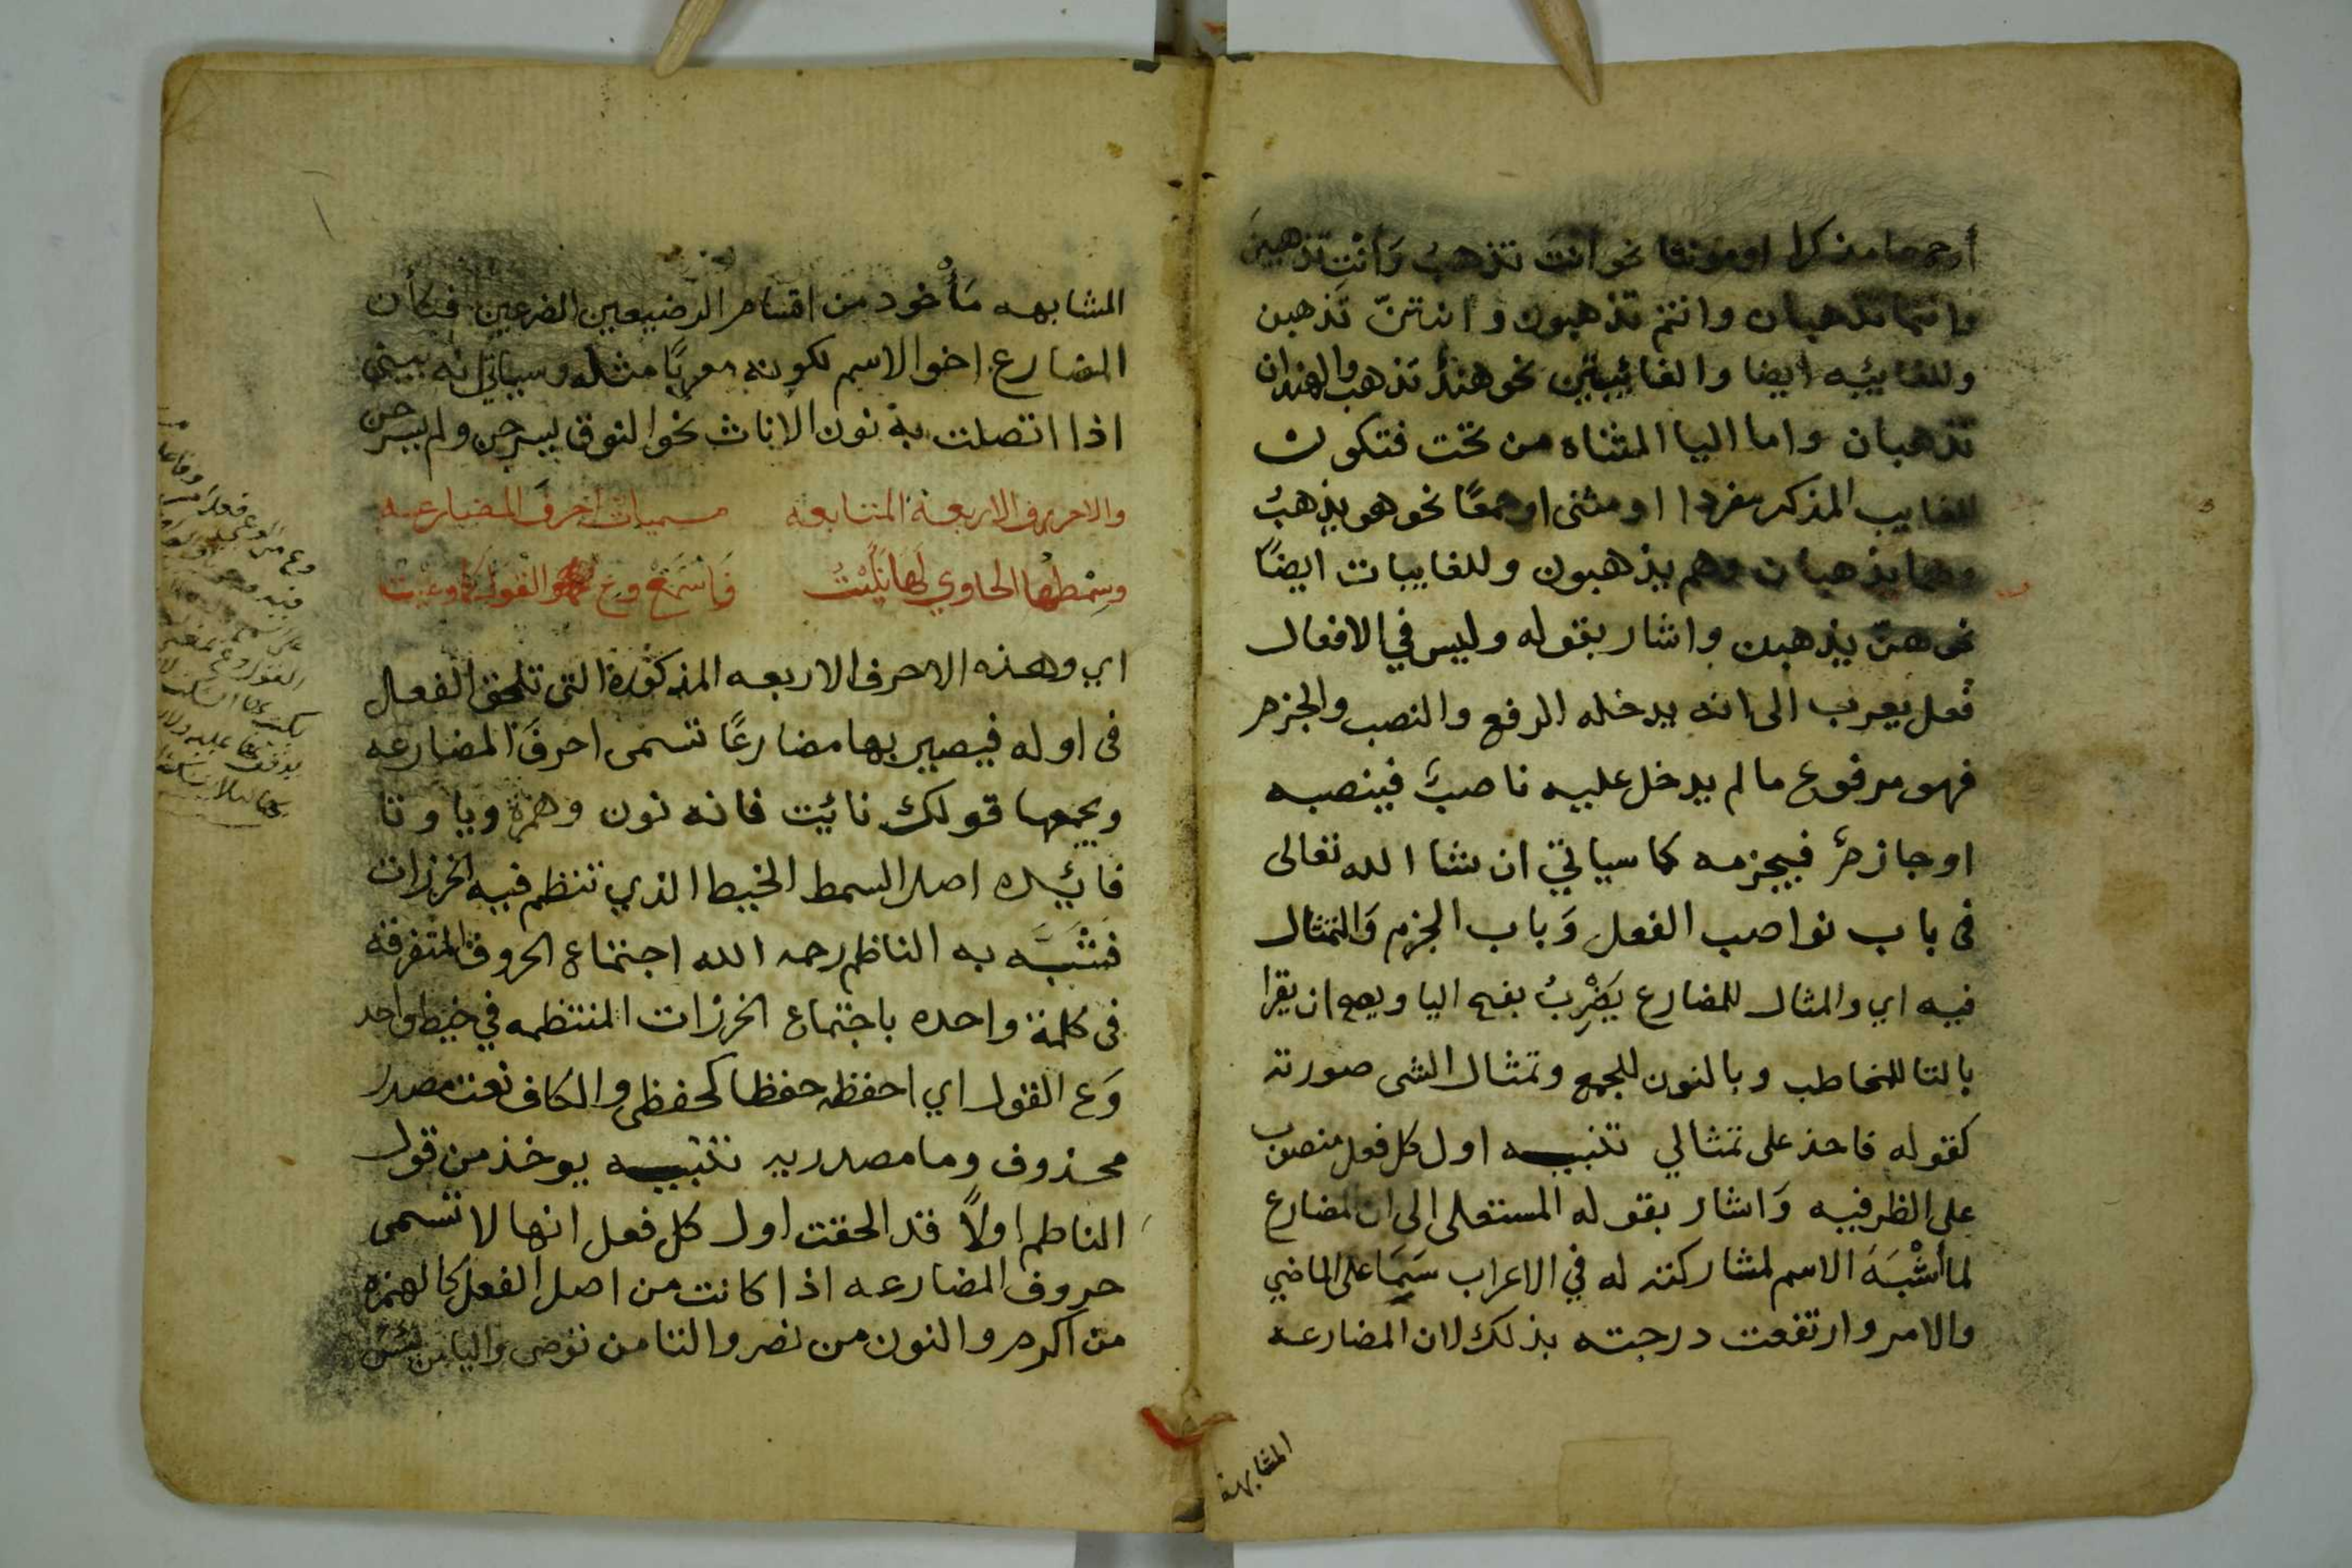 أو جمعا مذكرا او مونثا نحو انت تذهب وَانتِ تذهبينَ
وانتما تذهبان وانتم تذهبون وانتنّ تذهبن
وللغايبه ايضا والغائبتين نحو هندٌ تذهب والهندان
تذهبان واما اليا المثناه من تحت فتكون
للغايب المذكر مفردا او مثنى او جمعًا نحو هو يذهبُ
وهما يذهبان وهم يذهبون وللغايبات ايضًا
نحو هنّ يذهبن واشار بقوله وليس في الافعال
فعل يعرب الى انه يدخله الرفع والنصب والجزم
فهو مرفوع ما لم يدخل عليه ناصبٌ فينصبه
او جازمٌ فيجزمه كما سياتي ان شا الله تعالى
فى باب نواصب الفعل وَباب الجزم وَالتمثال
فيه اي والمثال للمضارع يَضْرِبُ بفتح اليا ويصح ان يقرا
بالتا للمخاطب وبالنون للجمع وتمثال الشى صورته
كقوله فاحذ على تمثالي تنبيه اول كل فعل منصوب
على الظرفيه وَاشار بقوله المستعلى الى ان المضارع
لما أشْبَهَ الاسم لمشاركته له في الاعراب سَمَا على الماضي
والامر وارتفعت درجته بذلك لان المضارعه
المشابهة
المشابهه مَأخوذ من اقتسام الرضيعين الضرعين فكأن
المضارع اخو الاسم لكونه معربًا مثله وسياتي انه يبنى
اذا اتصلت به نون الاناث نحو النوق ليسرحن ولم يسرحن
والاحرف الاربعة المتابعه مسميات احرفَ المضارعه
وسِمْطُها الحاوي لَهَا نَأَيْتُ فَاسْمَعْ وعِ القول كما وعيت
اي وهذه الاحرف الاربعه المذكورة التى تلحق الفعال
فى اوله فيصير بها مضارعًا تسمى احرفَ المضارعه
ويجمعها قولك نائيت فانه نون وهمزة ويا وتا
فائيده اصل السمط الخيط الذي تنظم فيه الخرزات
فشَبَّه به الناظم رحمه الله اجتماع الحروف المتفرقة
فى كلمة واحده باجتماع الخرزات المنتظمه في خيط واحد
وَع القول اي احفظه حفظا كحفظى والكاف نعت مصدر
محذوف وما مصدريه تنبيه يوخذ من قول
الناظم اولاً قد الحقت اول كل فعل انها لا تسمى
حروف المضارعه اذا كانت من اصل الفعل كالهمزه
من اكرم والنون من نصر والتا من توضى واليا من يئس